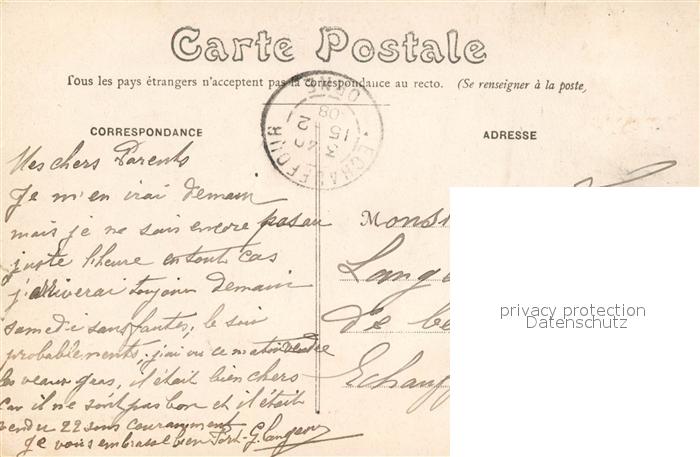 Carte Postale
Tous les pays étrangers n'acceptent pas la correspondance au recto. (Se renseigner à la poste,
CORRESPONDANCE
ADRESSE
ECHAUFFOUR
ORNE
15
2
08
Mes chers Parents
Je m'en irai demain
mais je ne sais encore pas au
juste l'heure en tout cas
j'arriverai toujours demain
samedi sans fautes, le soir
probablements; j'ai vu ce matin vendre
les veaux gras, il était bien chers
car il ne soit pas bon et il était
vendu 22 sous couramment
Je vous embrasse bien fort. G. Langeou
Monsi
Lang
De be
Echauf
privacy protection
Datenschutz